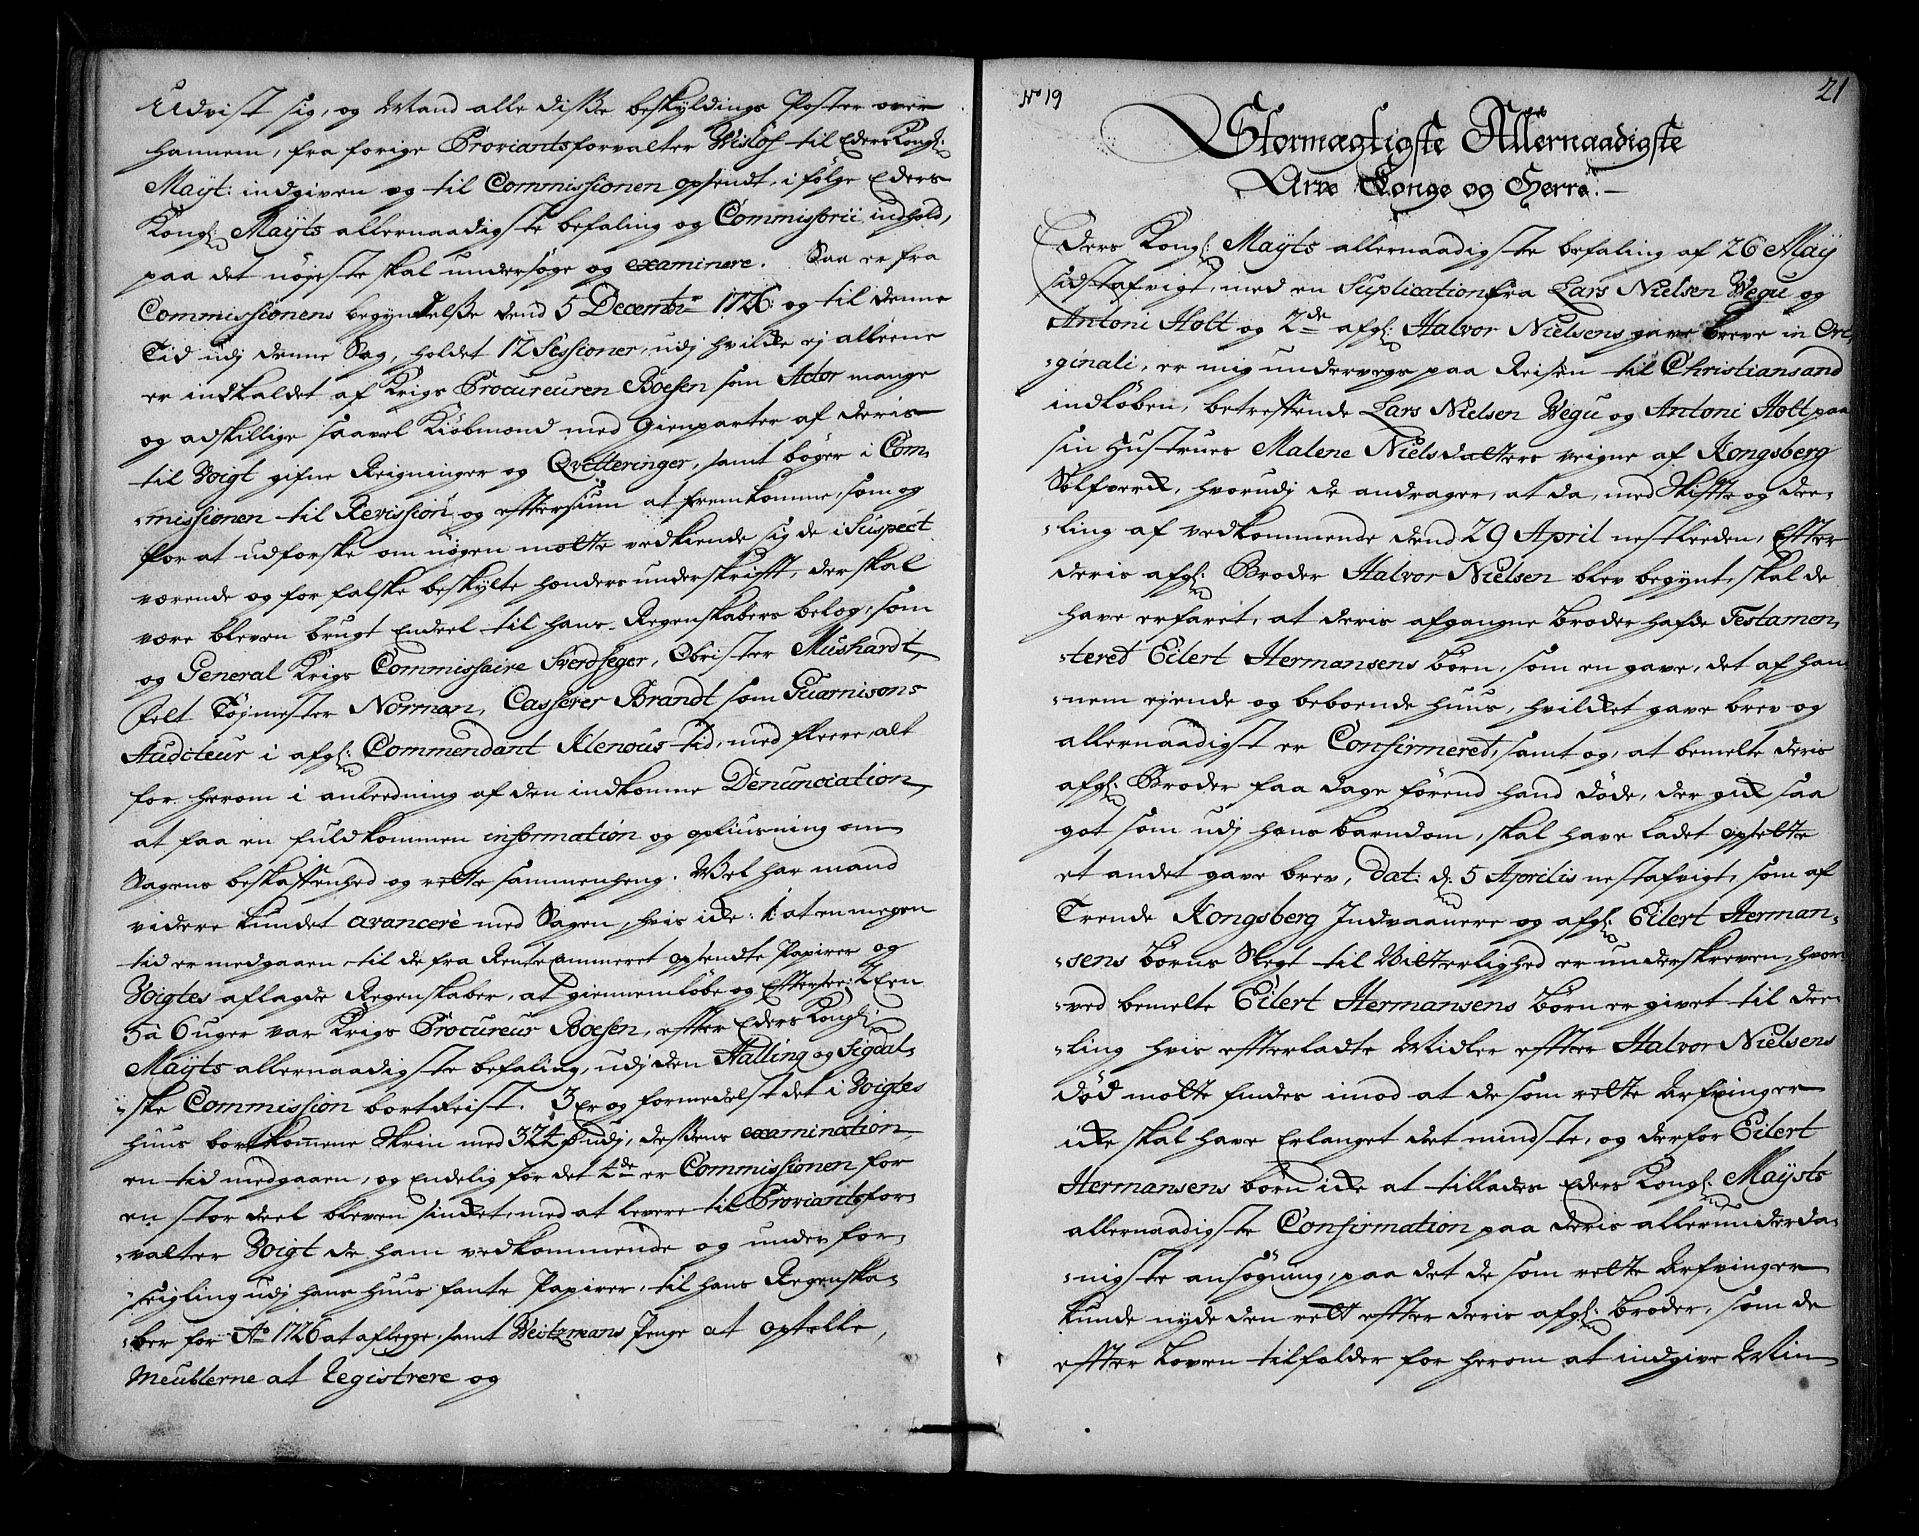 Udvist sig, og Mand alle disse beskyldings Poster over
hannem, fra forige Proviantsforvalter Weslof til Eders Kongl:
Mayt: indgiven og til Commissionen opsendt, i følge Eders
Kongl: Mayts allernaadigste befaling og Commissorii indhold,
paa det nøjeste skal undersøge og examinere. Saa er fra
Commissionens begyndelse dend 5 Decembr 1726: og til denne
Tid udj denne Sag, holdet 12 Sessioner, udj hvilke ej alleene
er indkaldet af Krigs Procureuren Boesen som Actor mange
og adskillige saavel Kiøbmænd med Gienparter af deris
til Voigt gifne Reigninger og Qvitteringer, samt bøger i Com-
-missionen til Revission og eftersiun at fremkomme, som og
for at udforske om nogen motte vedkiende sig de i Suspect
værende og for falske beskylte hænders underskrifft, der skal
være bleven brugt Endeel til hans Regenskabers belog, som
og General Krigs Commissaire Sverdfeger, Obrister Mushardt,
Felt Tøjmester Norman, Casserer Brandt som Guarnisons
Auditeur i afgl: Commendant Klenous tid, med fleere, alt
for herom i anleedning af den indkomne Denunciation,
at faa en fuldkommen information og opliusning om
Sagens beskaffenhed og rette sammenheng. Vel har mand
videre kundet avancere med Sagen, hvis ikke: 1 at en megen
tid er medgaaen til de fra RenteCammeret opsendte Papirer og
Voigtes aflagde Regenskaber, at giennemløbe og Efftersee: 2 Een
5 à 6 uger var Krigs Procureur Boesen, efter Eders Kongl:
Mayts allernaadigste befaling, udj den Halling og Sigdal-
-ske Commission bortreist. 3 Er og formedelst det i Voigtes
huus bortkomne Skrin med 324 udj, dessens examination,
en tid medgaaen, og Endelig for det 4de er Commissionen for
en stor deel bleven sinket, med at levere til Proviantsfor-
-valter Voigt de ham vedkommende og under for-
seigling udj hans huus fante Papirer, til hans Regenska-
-ber for Ao 1726 at aflegge, samt Weitzmans Penge at optelle,
Meublerne at Registrere og
No 19
21
Stormægtigste Allernaadigste
Arve Konge og Herre.
Eders Kongl: Mayts allernaadigste befaling af 26 May
sidstafvigt, med en Suplication fra Lars Nielsen Wegu og
Antoni Holt og 2de afgl: Halvor Nielsens gave breve in Ori-
-ginali, er mig undervegs paa Reisen til Christiansand
indløben, betreffende Lars Nielsen Wegu og Antoni Holt paa
sin Hustrues Malene Nielsdatters veigne af Kongsberg
Sølfverk, hvorudj de andrager, at da, med Skiffte og dee-
-ling af vedkommende dend 29 April nestleeden, Effter
deris afgl: Broder Halvor Nielsen blev begynt, skal de
have erfaret, at deris afgangne broder hafde Testamen-
-teret Eilert Hermansens børn, som en gave, det af han-
-nem ejende og beboende huus, hvilket gave brev og
allernaadigst er Confirmeret, samt og, at bemelte deris
afgl: Broder faa dage førend hand døde, der gik saa
got som udj hans barndom, skal have ladet opsette
et andet gave brev, Dat: d: 5 Aprilis nestafvigt, som af
Trende Kongsberg Indvaanere og afgl: Eilert Herman-
-sens børns Slegt til Vitterlighed er underskreven, hvor-
-ved bemelte Eilert Hermansens børn er givet til dee-
-ling hvis efterladte Midler effter Halvor Nielsens
død motte findes imod at de som rette Arfvinger
ikke skal have Erlanget det mindste, og derfor Eilert
Hermansens børn ikke at tillades Eders Kongl: Mayts
allernaadigste Confirmation paa deris allerunderda-
-nigste ansøgning, paa det de som rette Arfvinger
kunde nyde den rett effter deris afgl: broder, som de
effter Loven tilfalder for herom at indgive Min